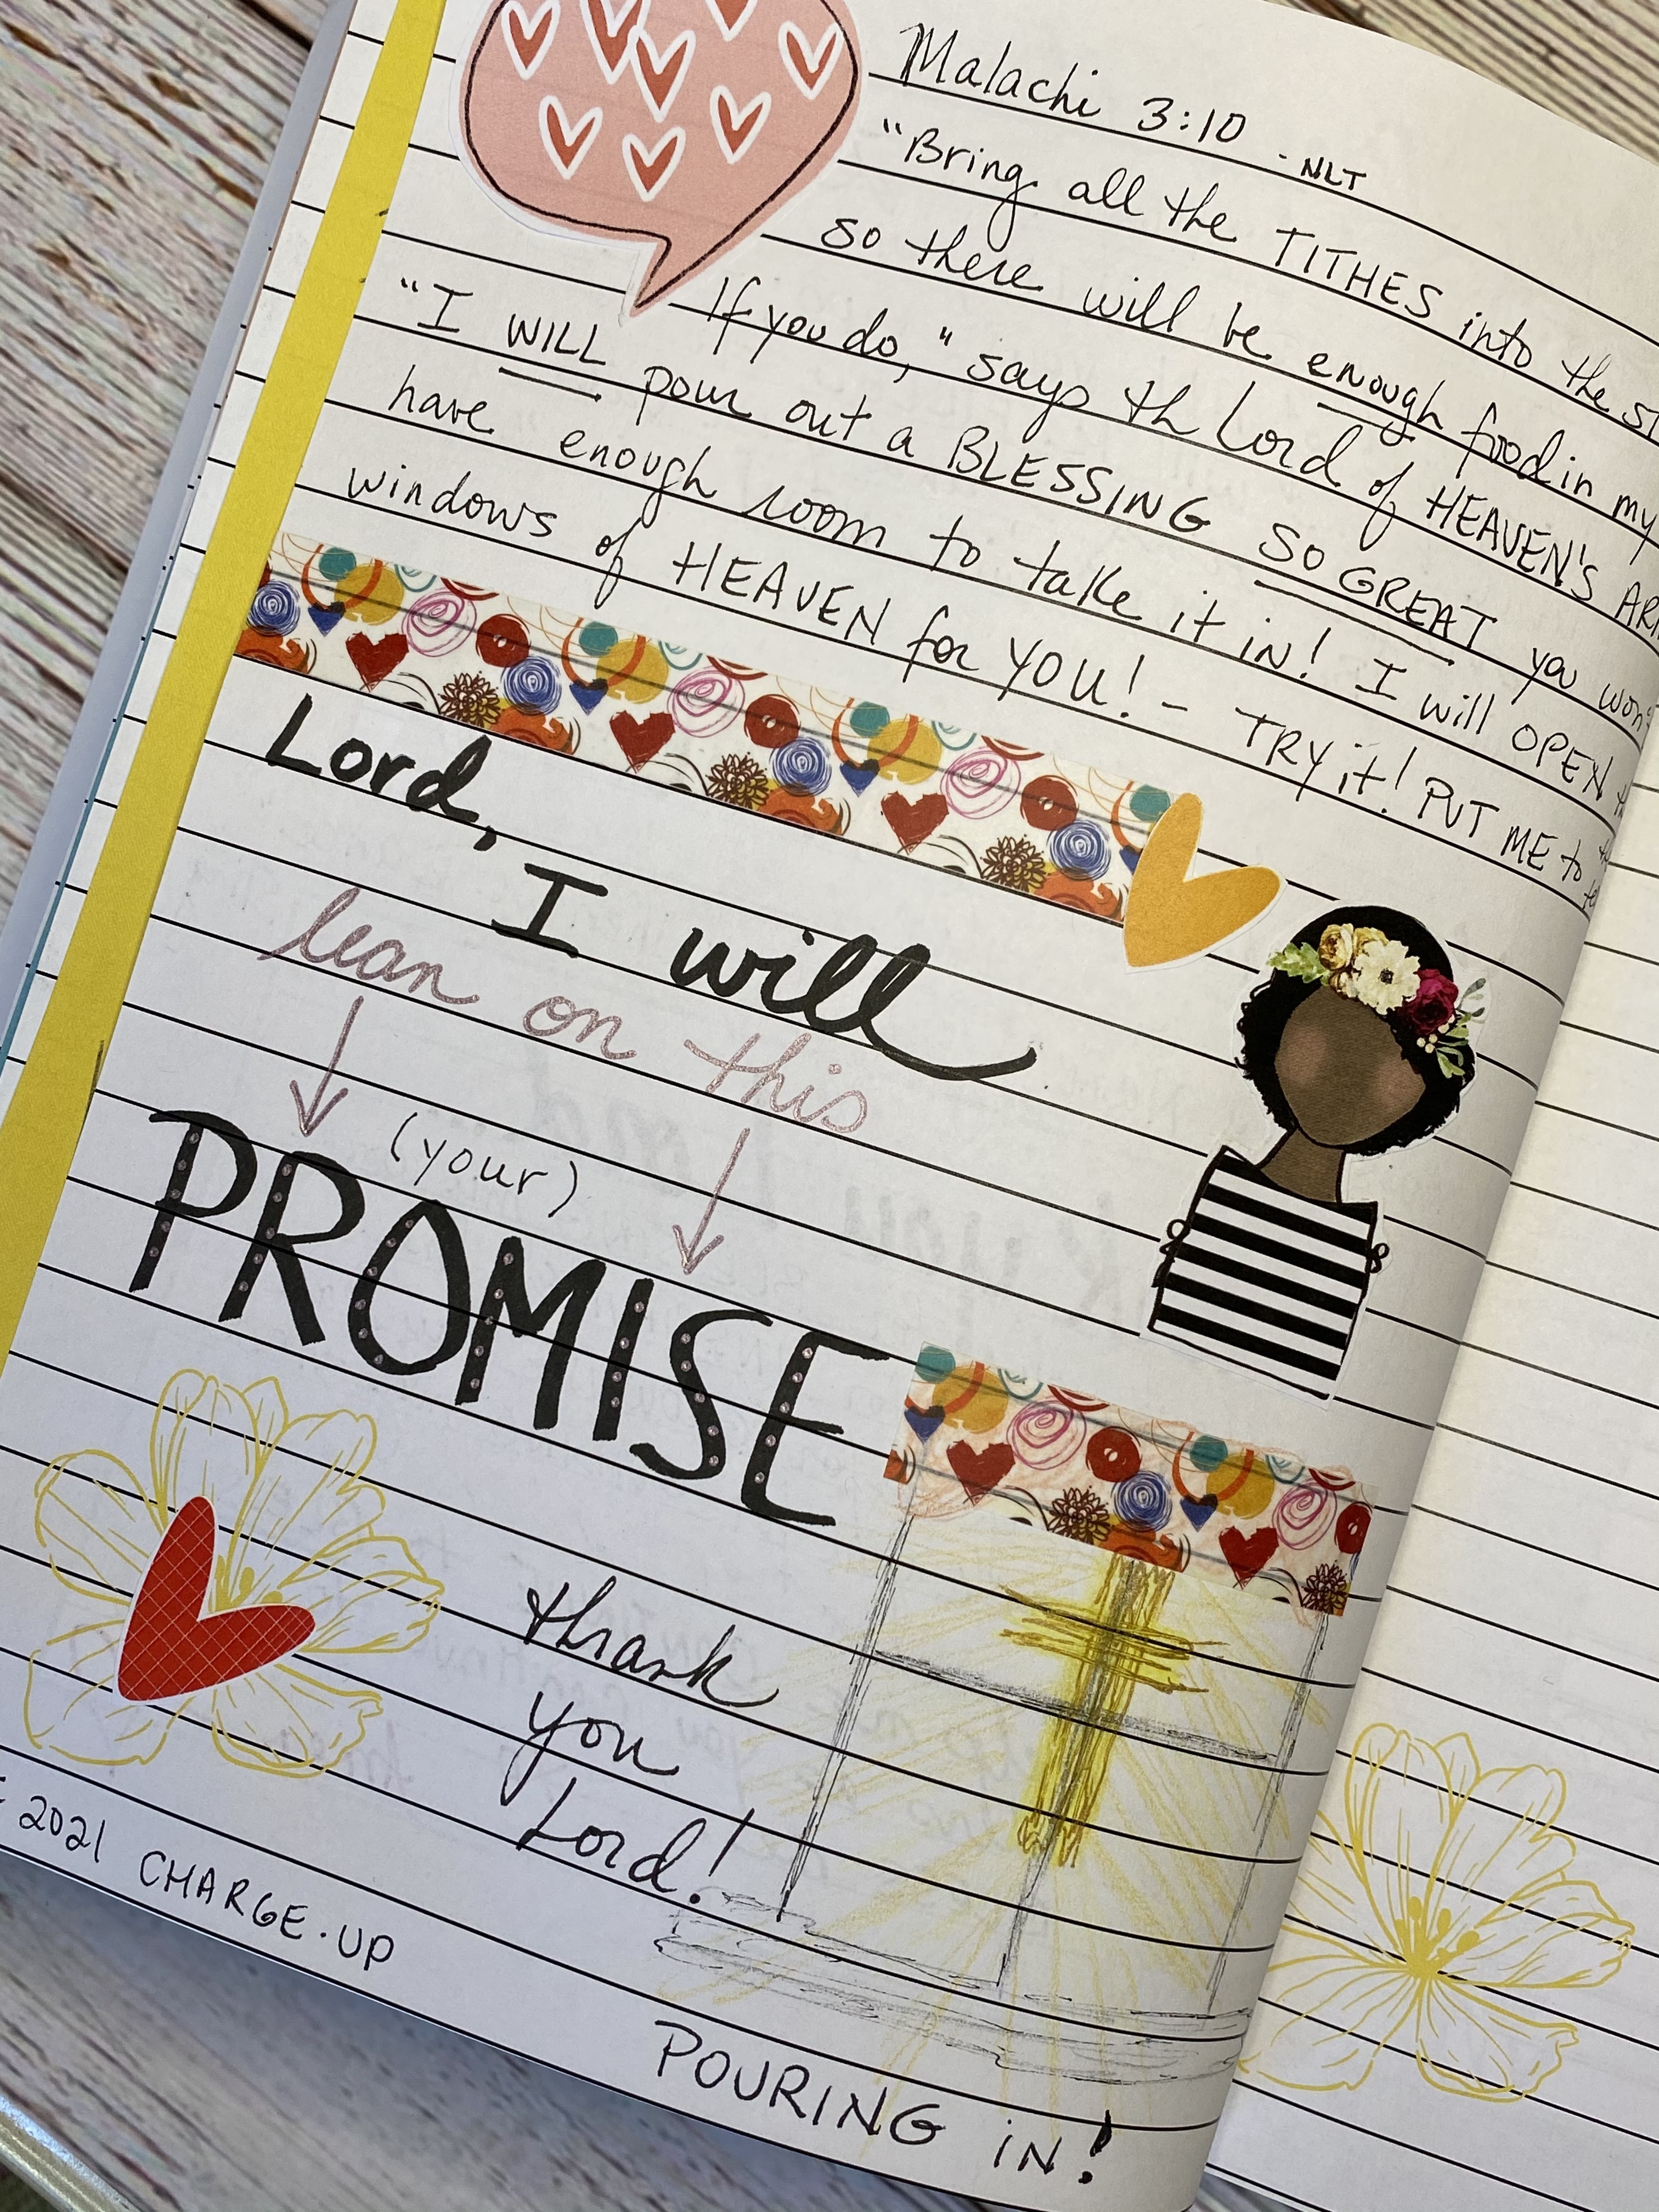 Malachi 3:10 - NLT
"Bring all the TITHES into the
so there will be enough food in my
If you do," says th Lord of HEAVEN'S
"I WILL pour out a BLESSING SO GREAT you won't
have enough room to take it in! I will OPEN
windows of HEAVEN for YOU! - TRY it! PUT ME to
Lord,
I will
lean on this
(your)
PROMISE
thank
you
Lord!
2021 CHARGE·UP
POURING IN!